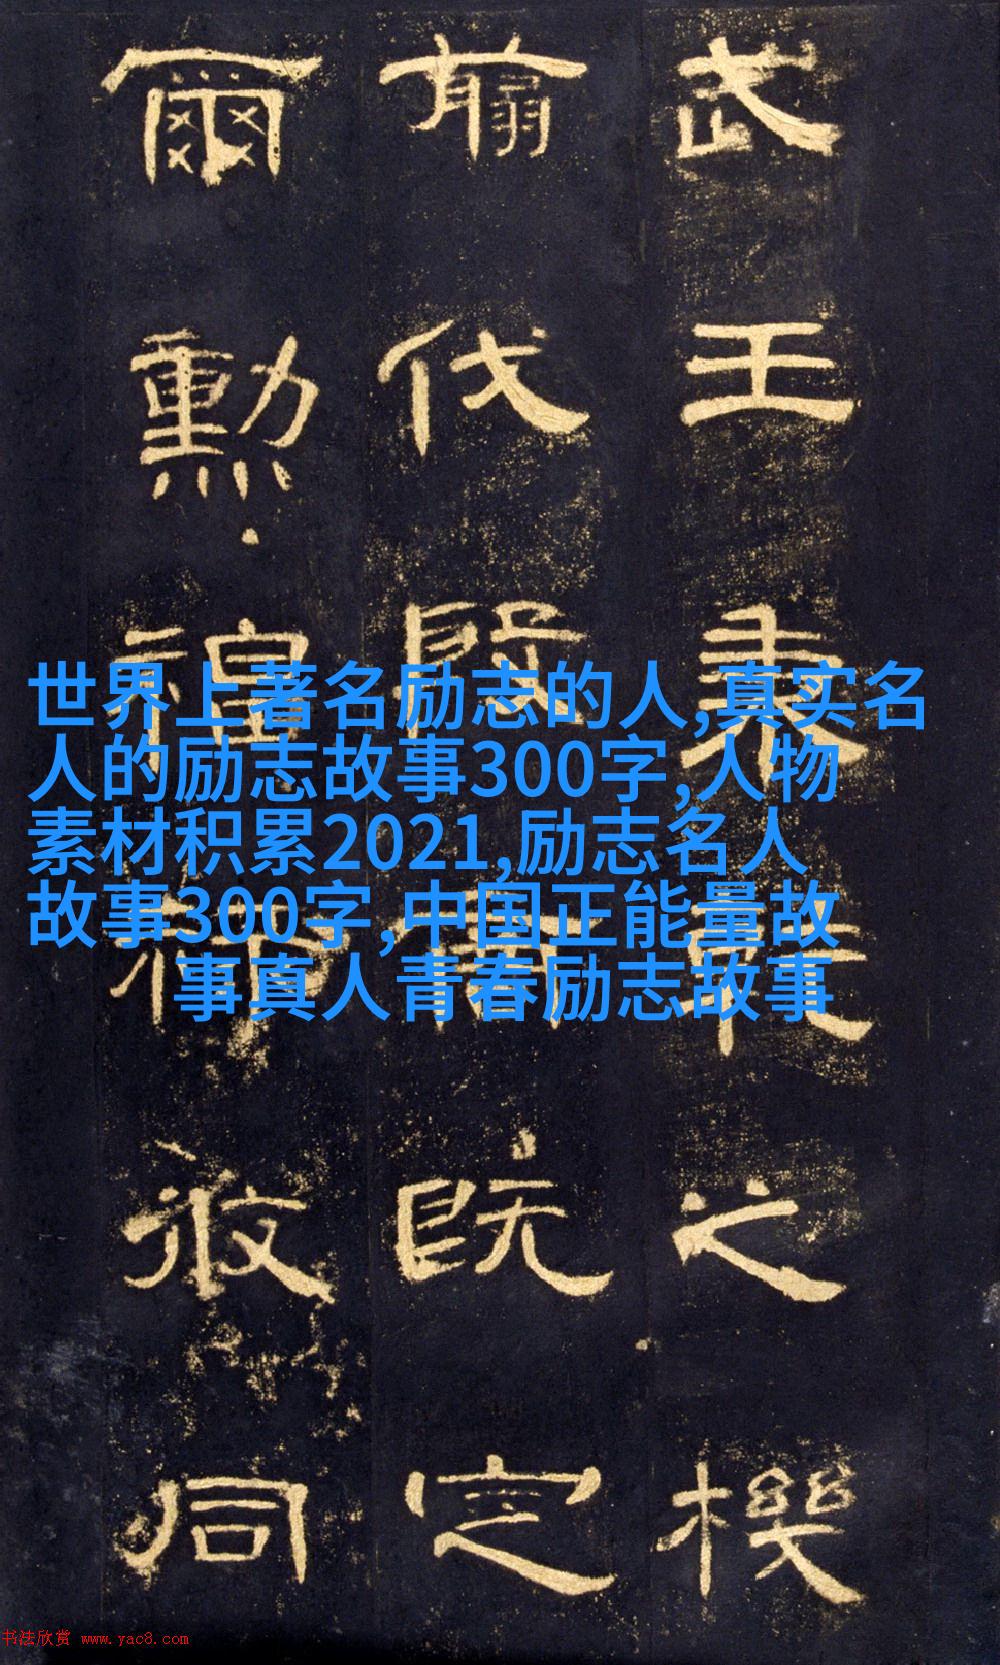 武王秉之機
翦伐殷商既定
爾勳福攸同
世界上著名励志的人,真实名
人的励志故事300字,人物
素材积累2021,励志名人
故事300字,中国正能量故
事真人青春励志故事
书法欣赏 www.yac8.com